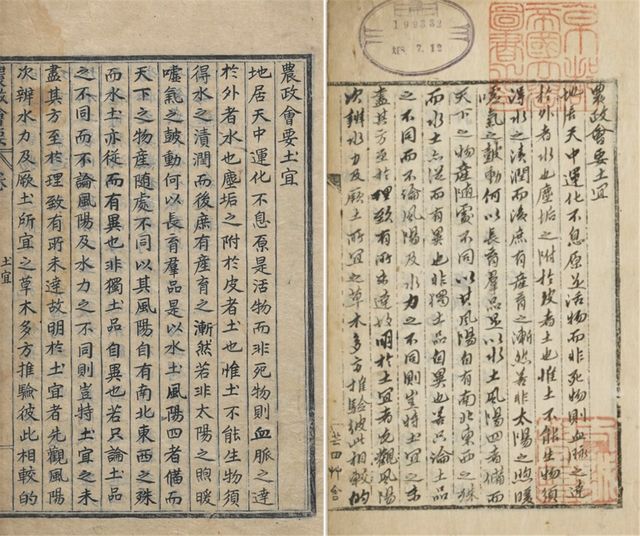 農政會要土宜
地居天中運化不息原是活物而非死物則血脈之達
於外者水也塵垢之附於皮者土也惟土不能生物須
得水之漬潤而後庶有産育之漸然若非太陽之照暖
噓氣之鼓動何以長育羣品是以水土風陽四者備而
天下之物産隨處不同以其風陽自有南北東西之殊
而水土亦從而有異也非獨土品自異也若只論土品
之不同而不論風陽及水力之不同則豈特土宜之未
盡其方至於理致有所未達故明於土宜者先觀風陽
次辨水力及厥土所宜之草木多方推驗彼此相較的
農政會要
土宜
7.12
農政會要土宜
地居天中運化不息原是活物而非死物則血脈之達
於外者水也塵垢之附於皮者土也惟土不能生物須
得水之漬潤而後庶有産育之漸然若非太陽之照暖
噓氣之鼓動何以長育羣品是以水土風陽四者備而
天下之物産隨處不同以其風陽自有南北東西之殊
而水土亦從而有異也非獨土品自異也若只論土品
之不同而不論風陽及水力之不同則豈特土宜之未
盡其方至於理致有所未達故明於土宜者先觀風陽
次辨水力及厥土所宜之草木多方推驗彼此相較的